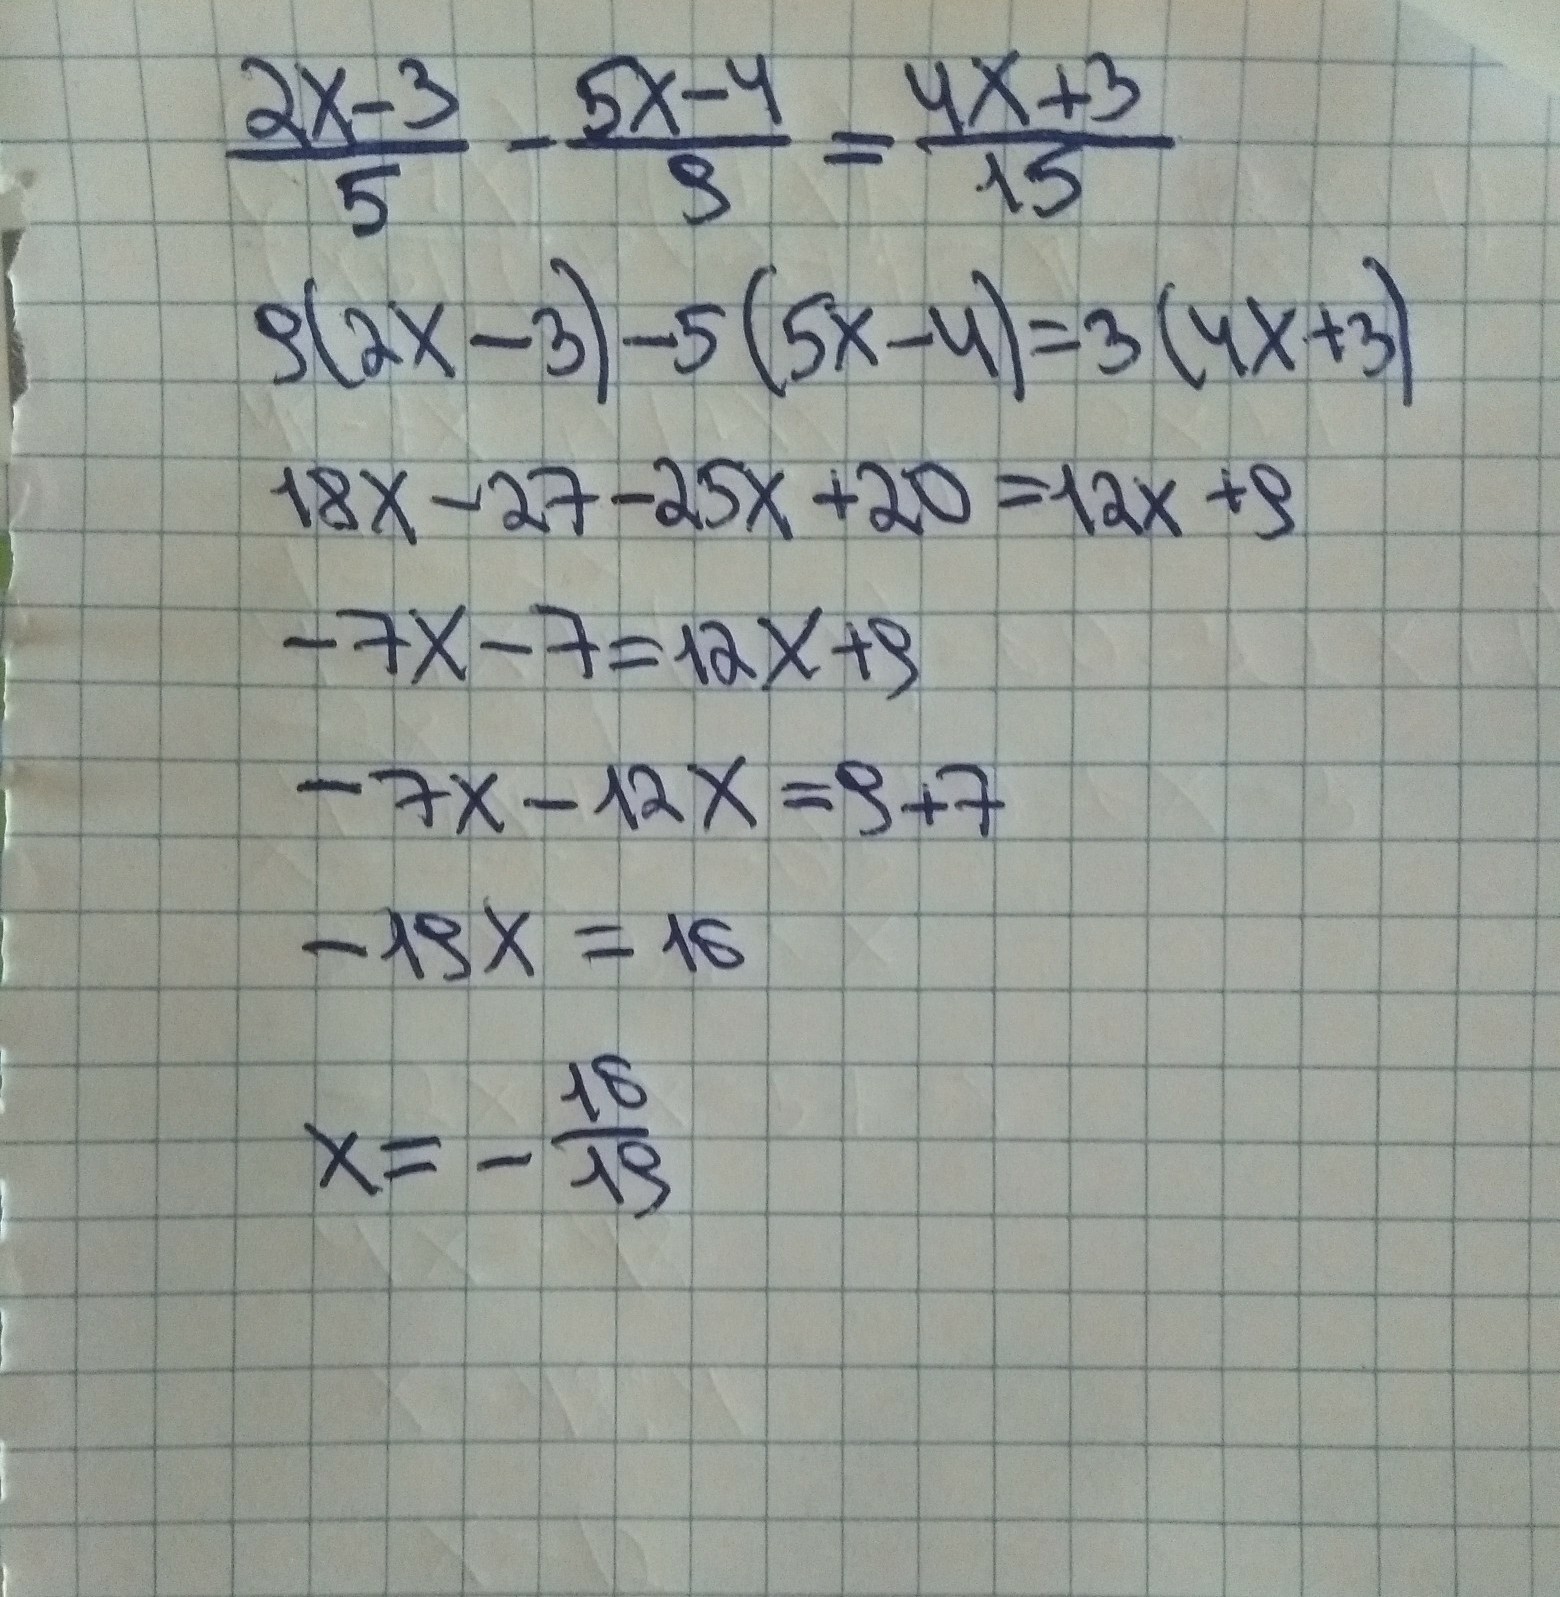 (2x-3)/5 - (5x-4)/9 = (4x+3)/15
9(2x-3)-5(5x-4)=3(4x+3)
18x-27-25x+20=12x+9
-7x-7=12x+9
-7x-12x=9+7
-19x=16
x=-16/19